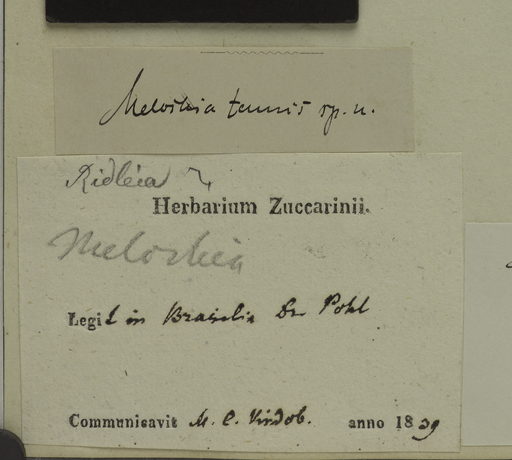 Melochia tenuis sp. n.
Riedleia
Herbarium Zuccarinii.
Melochia
Legit in Brasilia Dr Pohl
Communicavit M. C. Vindob. anno 1839